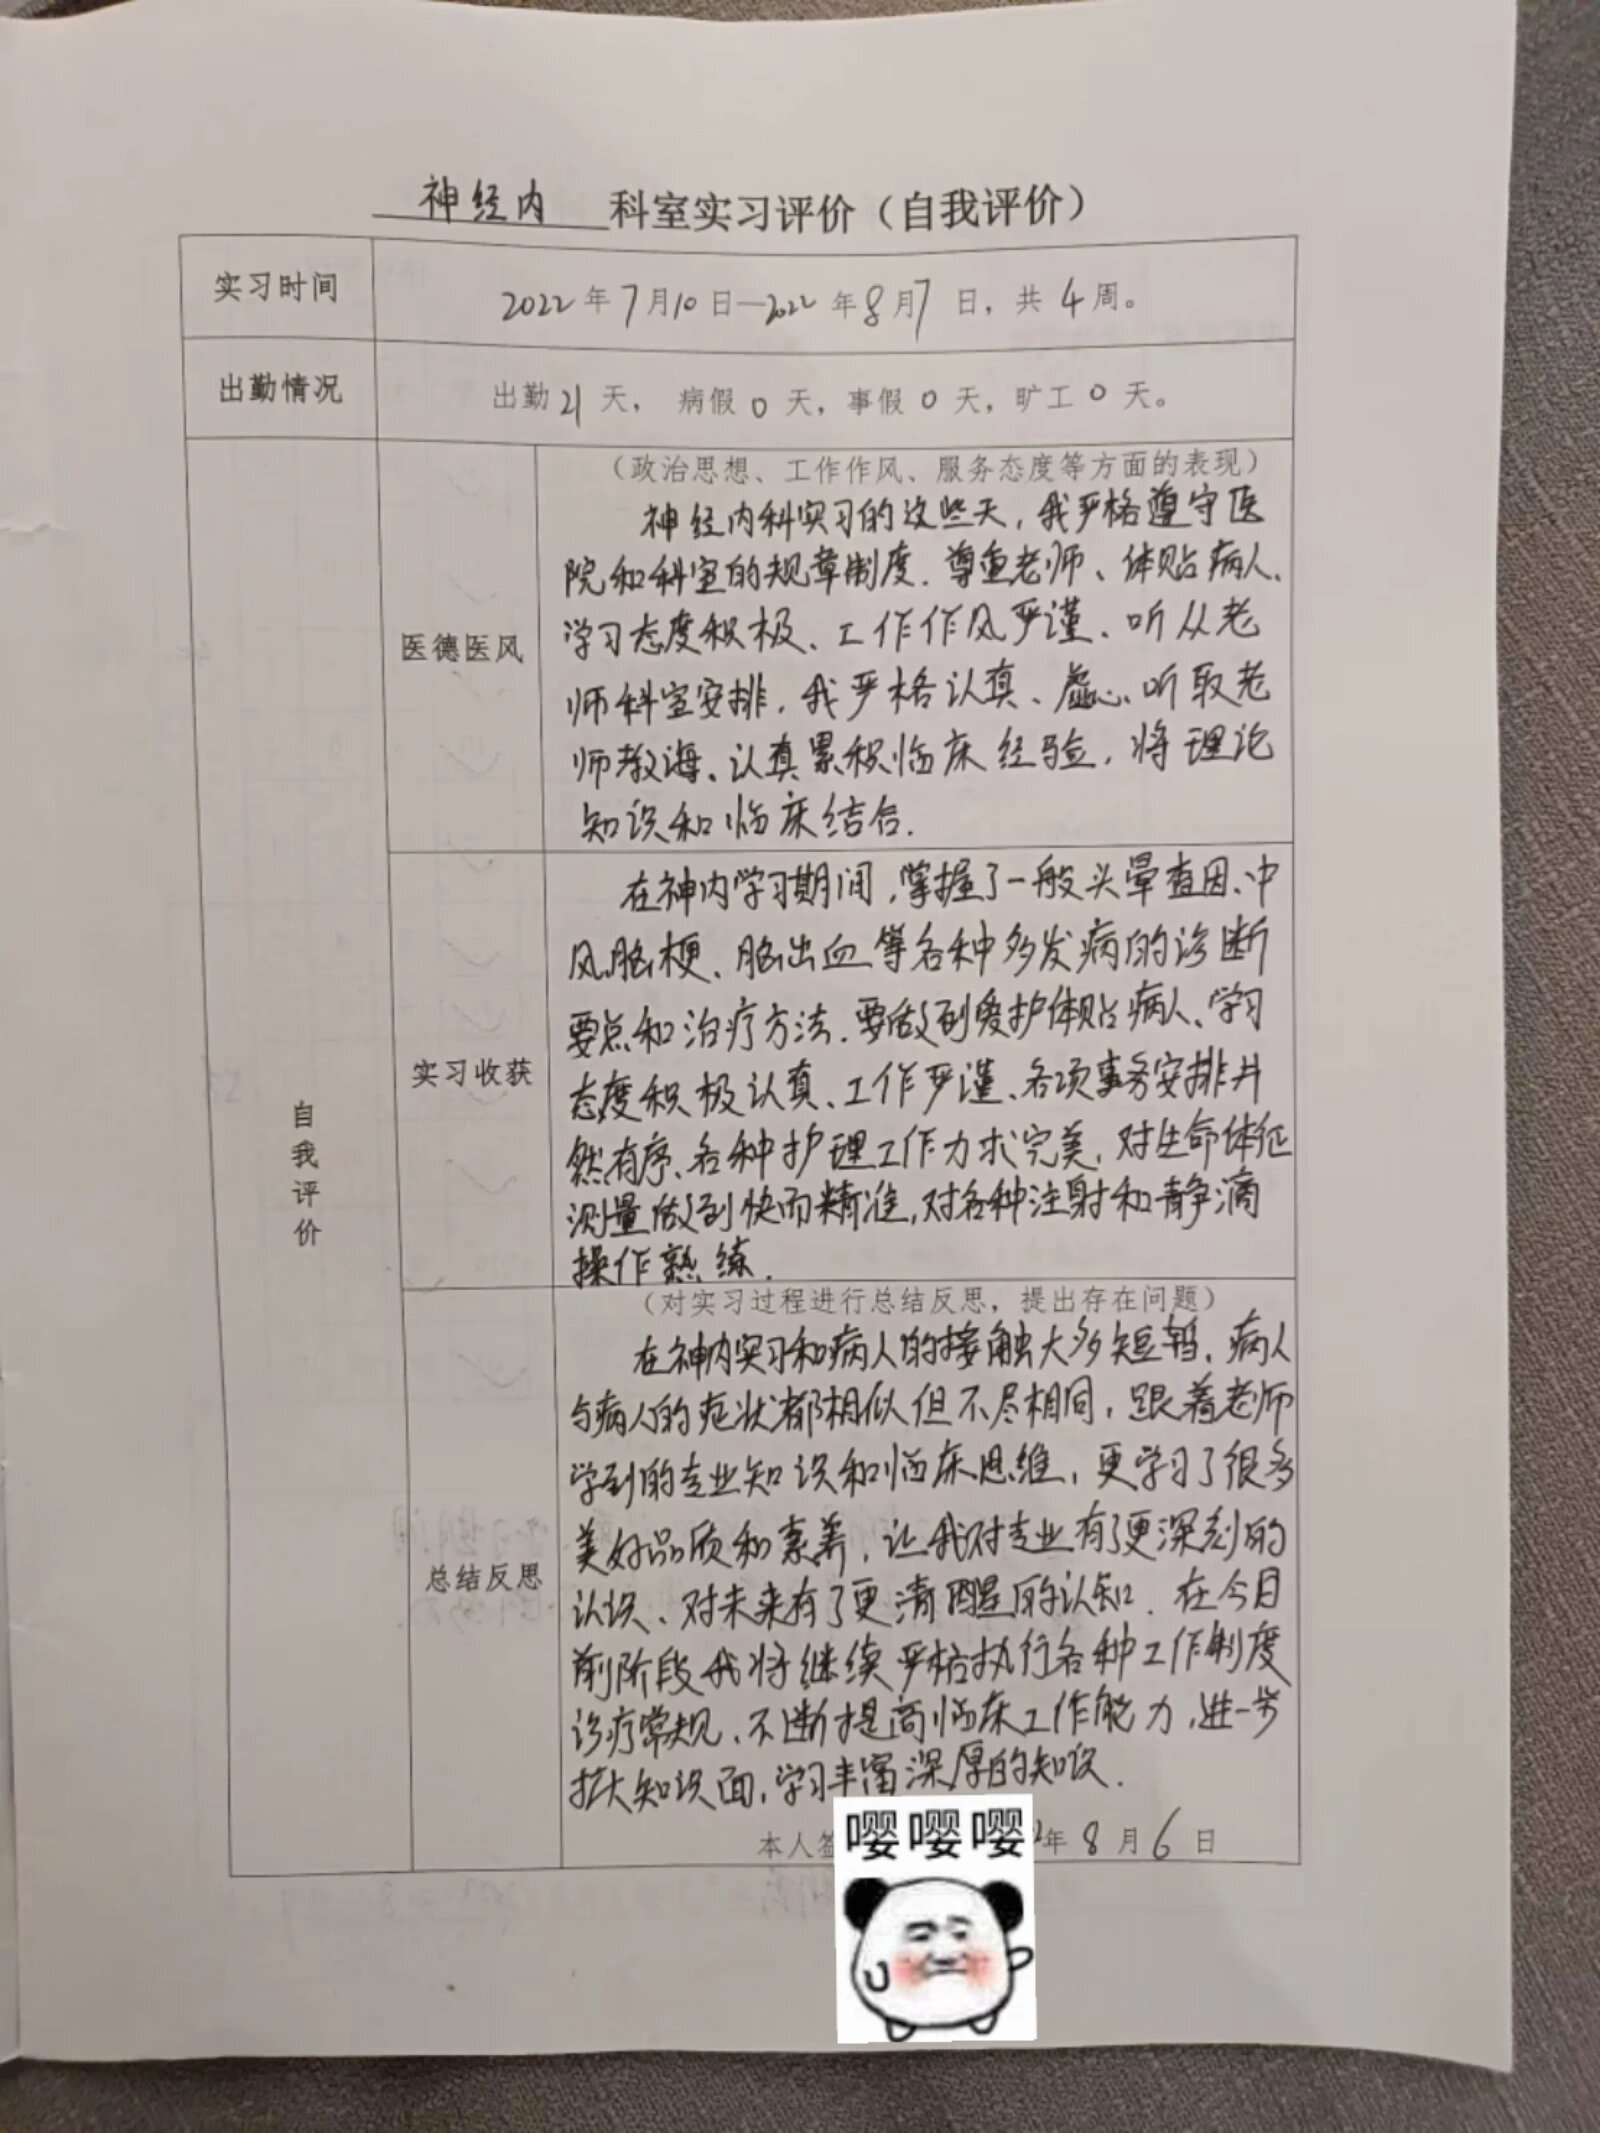 神经内 科室实习评价（自我评价）
实习时间
2022年7月10日—2022年8月7日，共4周。
出勤情况
出勤21天， 病假0天，事假0天，旷工0天。
自我评价
医德医风
（政治思想、工作作风、服务态度等方面的表现）
神经内科实习的这些天，我严格遵守医
院和科室的规章制度.尊重老师、体贴病人、
学习态度积极、工作作风严谨、听从老
师科室安排，我严格认真、虚心、听取老
师教诲、认真累积临床经验，将理论
知识和临床结合.
实习收获
在神内学习期间，掌握了一般头晕查因、中
风脑梗、脑出血等各种多发病的诊断
要点和治疗方法.要做到爱护体贴病人、学习
态度积极认真、工作严谨、各项事务安排井
然有序、各种护理工作力求完美，对生命体征
测量做到快而精准，对各种注射和静滴
操作熟练.
总结反思
（对实习过程进行总结反思，提出存在问题）
在神内实习和病人的接触大多短暂、病人
与病人的症状都相似但不尽相同，跟着老师
学到的专业知识和临床思维，更学习了很多
美好品质和素养，让我对专业有了更深刻的
认识、对未来有了更清醒的认知.在今目
前阶段我将继续严格执行各种工作制度
诊疗常规、不断提高临床工作能力，进一步
扩大知识面，学习丰富深厚的知识.
本人签 年8月6日
嘤嘤嘤